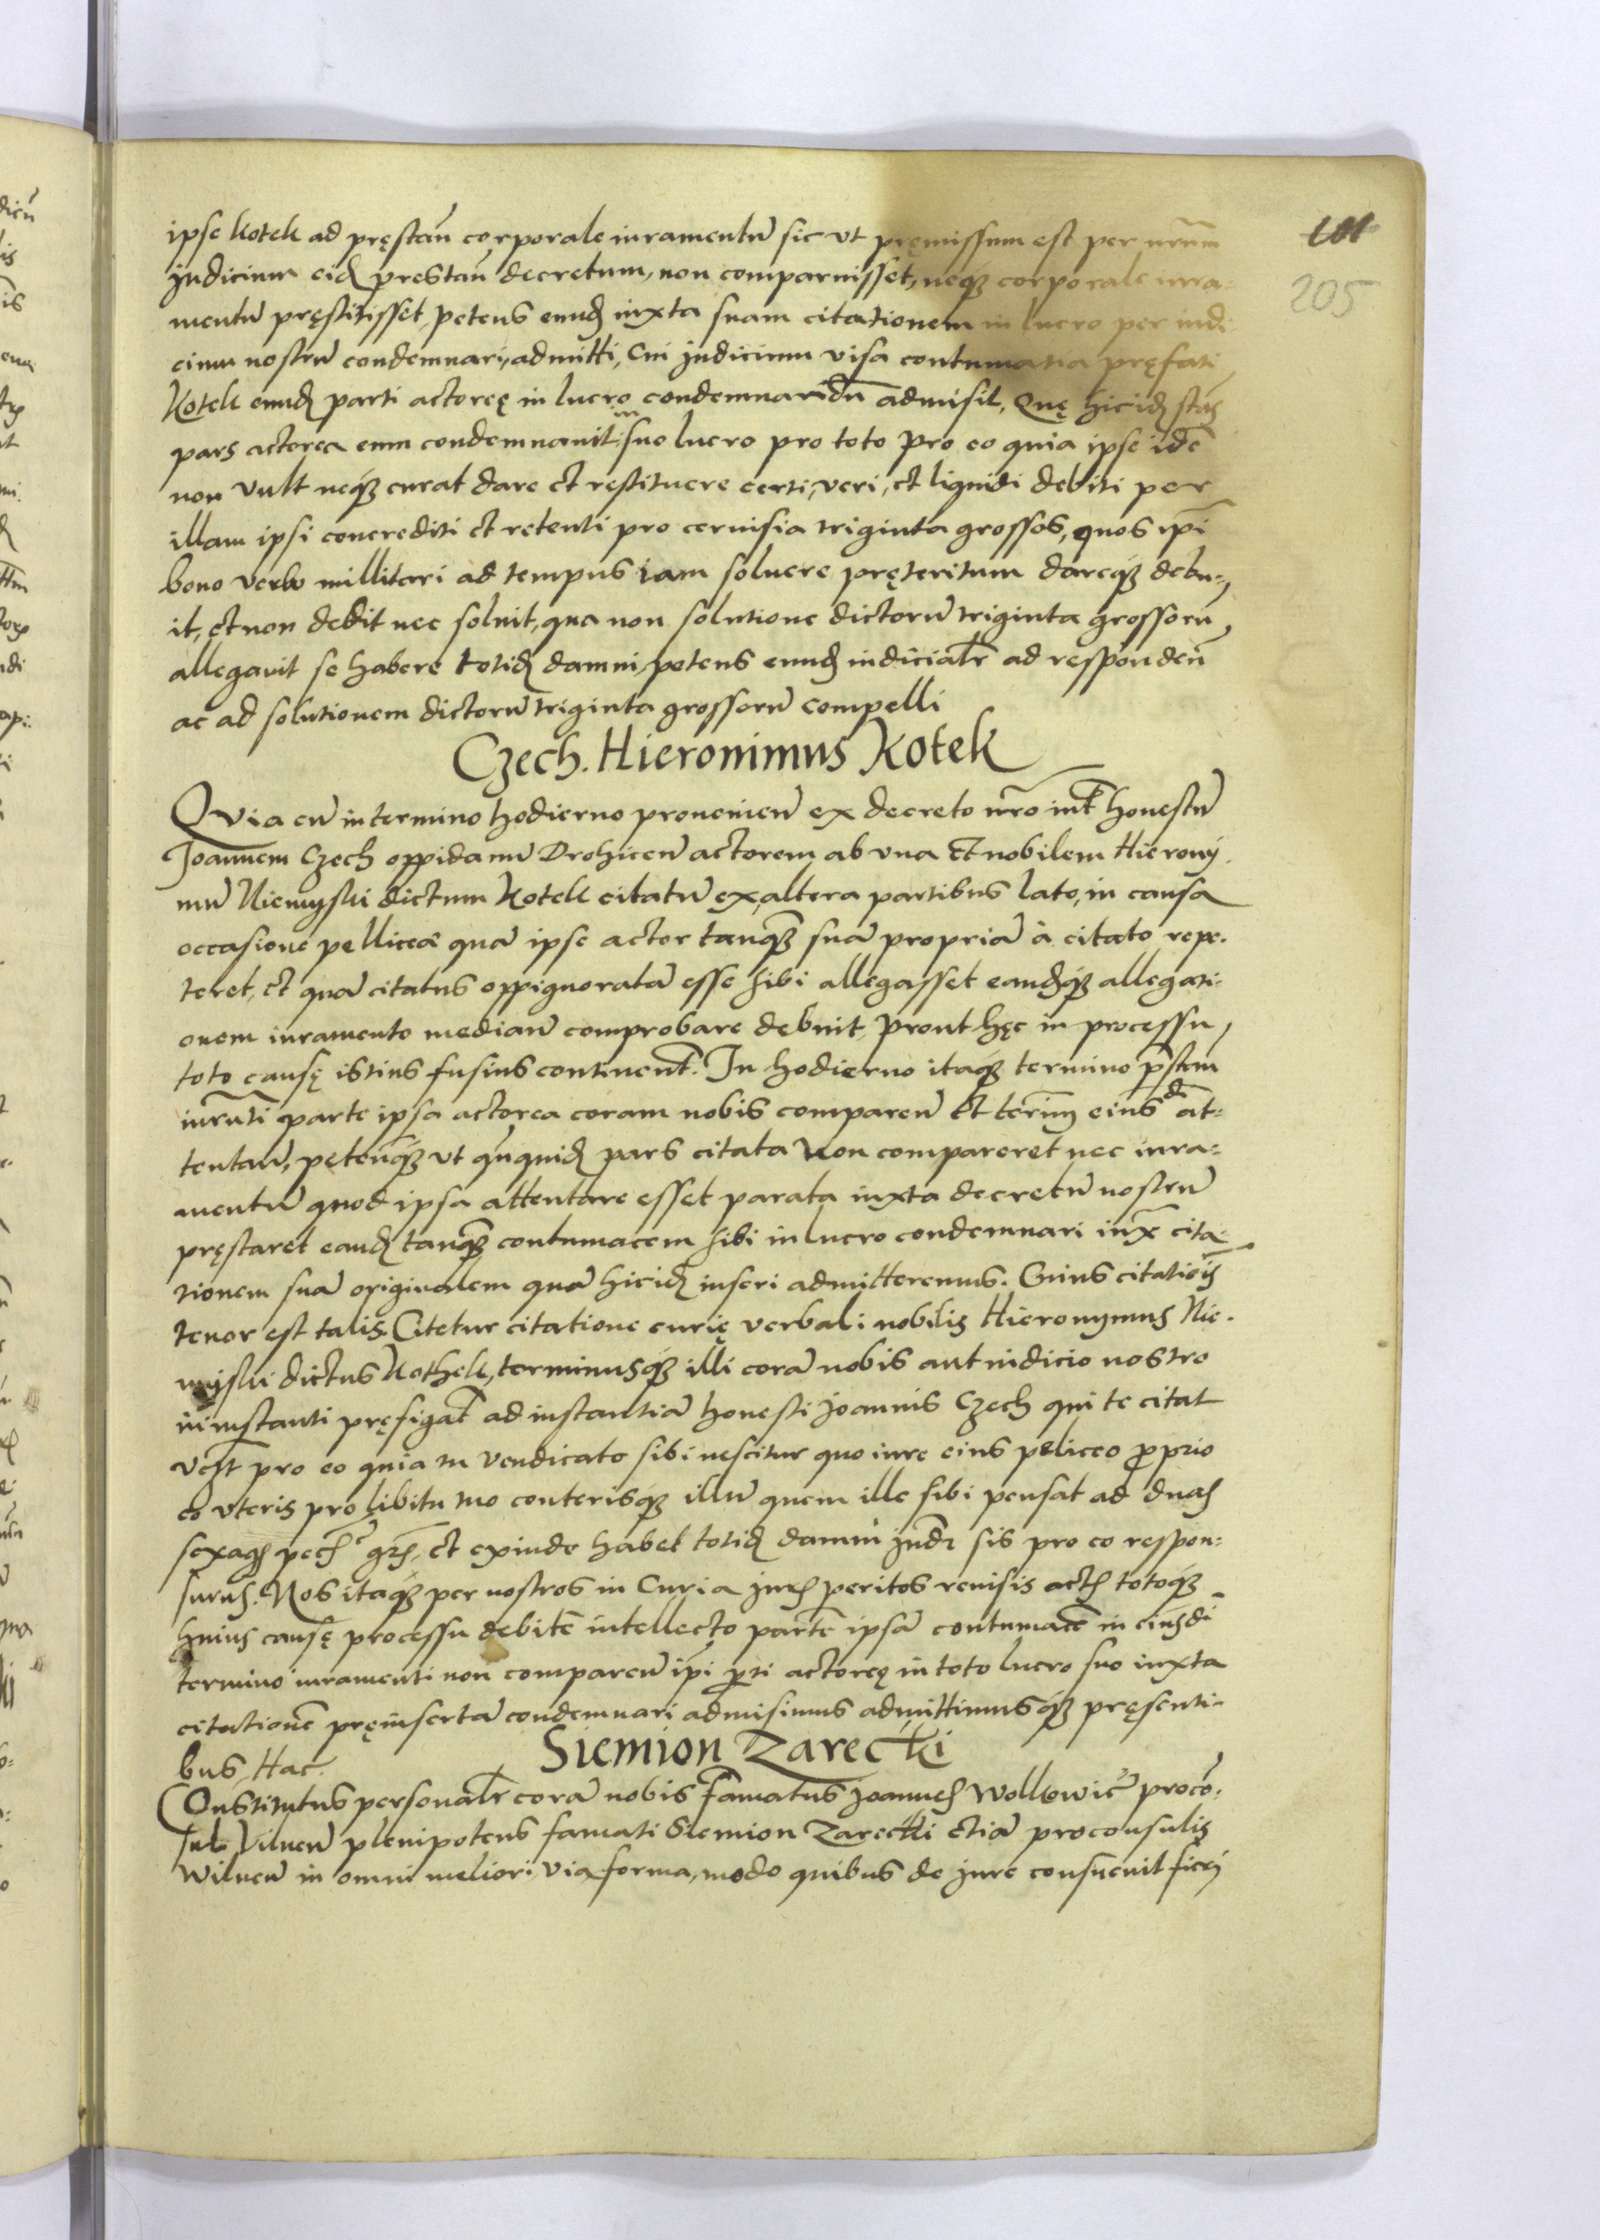 101
205
ipse Kotek ad pręstań corporale iuramentū sic ut pręmissum est per nrūm
judicium eid prestań decretum, non comparuisset, neq3 corporale iura-
mentū pręstitisset, petens eund iuxta suam citationem in lucro per iudi
cium nostrū condemnari, admitti, Cui judicium visa contumatia pręfati
Kotek eund parti actoreę in lucro condemnandū admisit, Quę hicid stās
pars actorea eum condemnavit in suo lucro pro toto Pro eo quia ipse idē
non vult neq3 curat dare et restituere certi, veri, et liquidi debiti per
illam ipsi concrediti et retenti pro cervisia triginta grossos, quos ipī
bono verbo millitari ad tempus iam soluere pręteritum dareq3 debu-
it, et non dedit nec soluit, qua non solutione dictorū triginta grossorū,
allegavit se habere totid damni, petens eund iudicialr ad responden
ac ad solutionem dictorū triginta grossorū compelli
Czech. Hieronimus Kotek
Quia cū in termino hodierno provenieñ ex decreto nrō int honestū
Joannem Czech oppidanū Drohiceñ actorem ab una et nobilem Hierony-
mū Niemyski dictum Kotek citatū ex altera partibus lato, in causa
occasione pelliceæ quā ipse actor tanq3 suā propriā à citato repe-
teret, et quā citatus oppignoratā esse sibi allegasset eandq3 allegati-
onem iuramento mediañ comprobare debuit, Prout hęc in processu,
toto causę istius fusius continent. In hodierno itaq3 termino pstañ
iurnti parte ipsa actorea coram nobis compareñ et termin eiusdi at-
tentañ, peteñq3 ut qnquid pars citata non compareret nec iura-
mentū quod ipsa attentare esset parata iuxta decretū nostrū
pręstaret eand tanq3 contumacem sibi in lucro condemnari iux cita-
tionem suā originalem quā hicid inseri admitteremus. Cuius citatiois
tenor est talis. Citetur citatione curię verbali nobilis Hieronymus Nie-
myski dictus Kothek, terminusq3 illi corā nobis aut iudicio nostro
in instanti pręfigat ad instantiā honesti Joannis Czech qui te citat
vest pro eo quia tu vendicato sibi nescitur quo iure eius peliceo proprio
eo uteris pro libitu tuo conterisq3 illū quem ille sibi pensat ad duas
sexags pech grs, et exinde habet totid damni jndr sis pro eo respon-
surus. Nos itaq3 per nostros in Curia jures peritos revisis actis totoq3
huius causę processu debitē intellecto partē ipsā contumacē in eiusdi
termino iuramenti non compareñ ipi pti actoreę in toto lucro suo iuxta
citationē pręinsertā condemnari admisimus admittimusq3 pręsenti-
bus, Hac.
Siemion Zarecki
Constitutus personalr corā nobis famatus Joannes Wollowicz procō-
sul Vilneñ plenipotens famati Siemion Zarecki etiā proconsulis
Wilneñ in omni meliori via forma, modo quibus de jure consuevit fieri